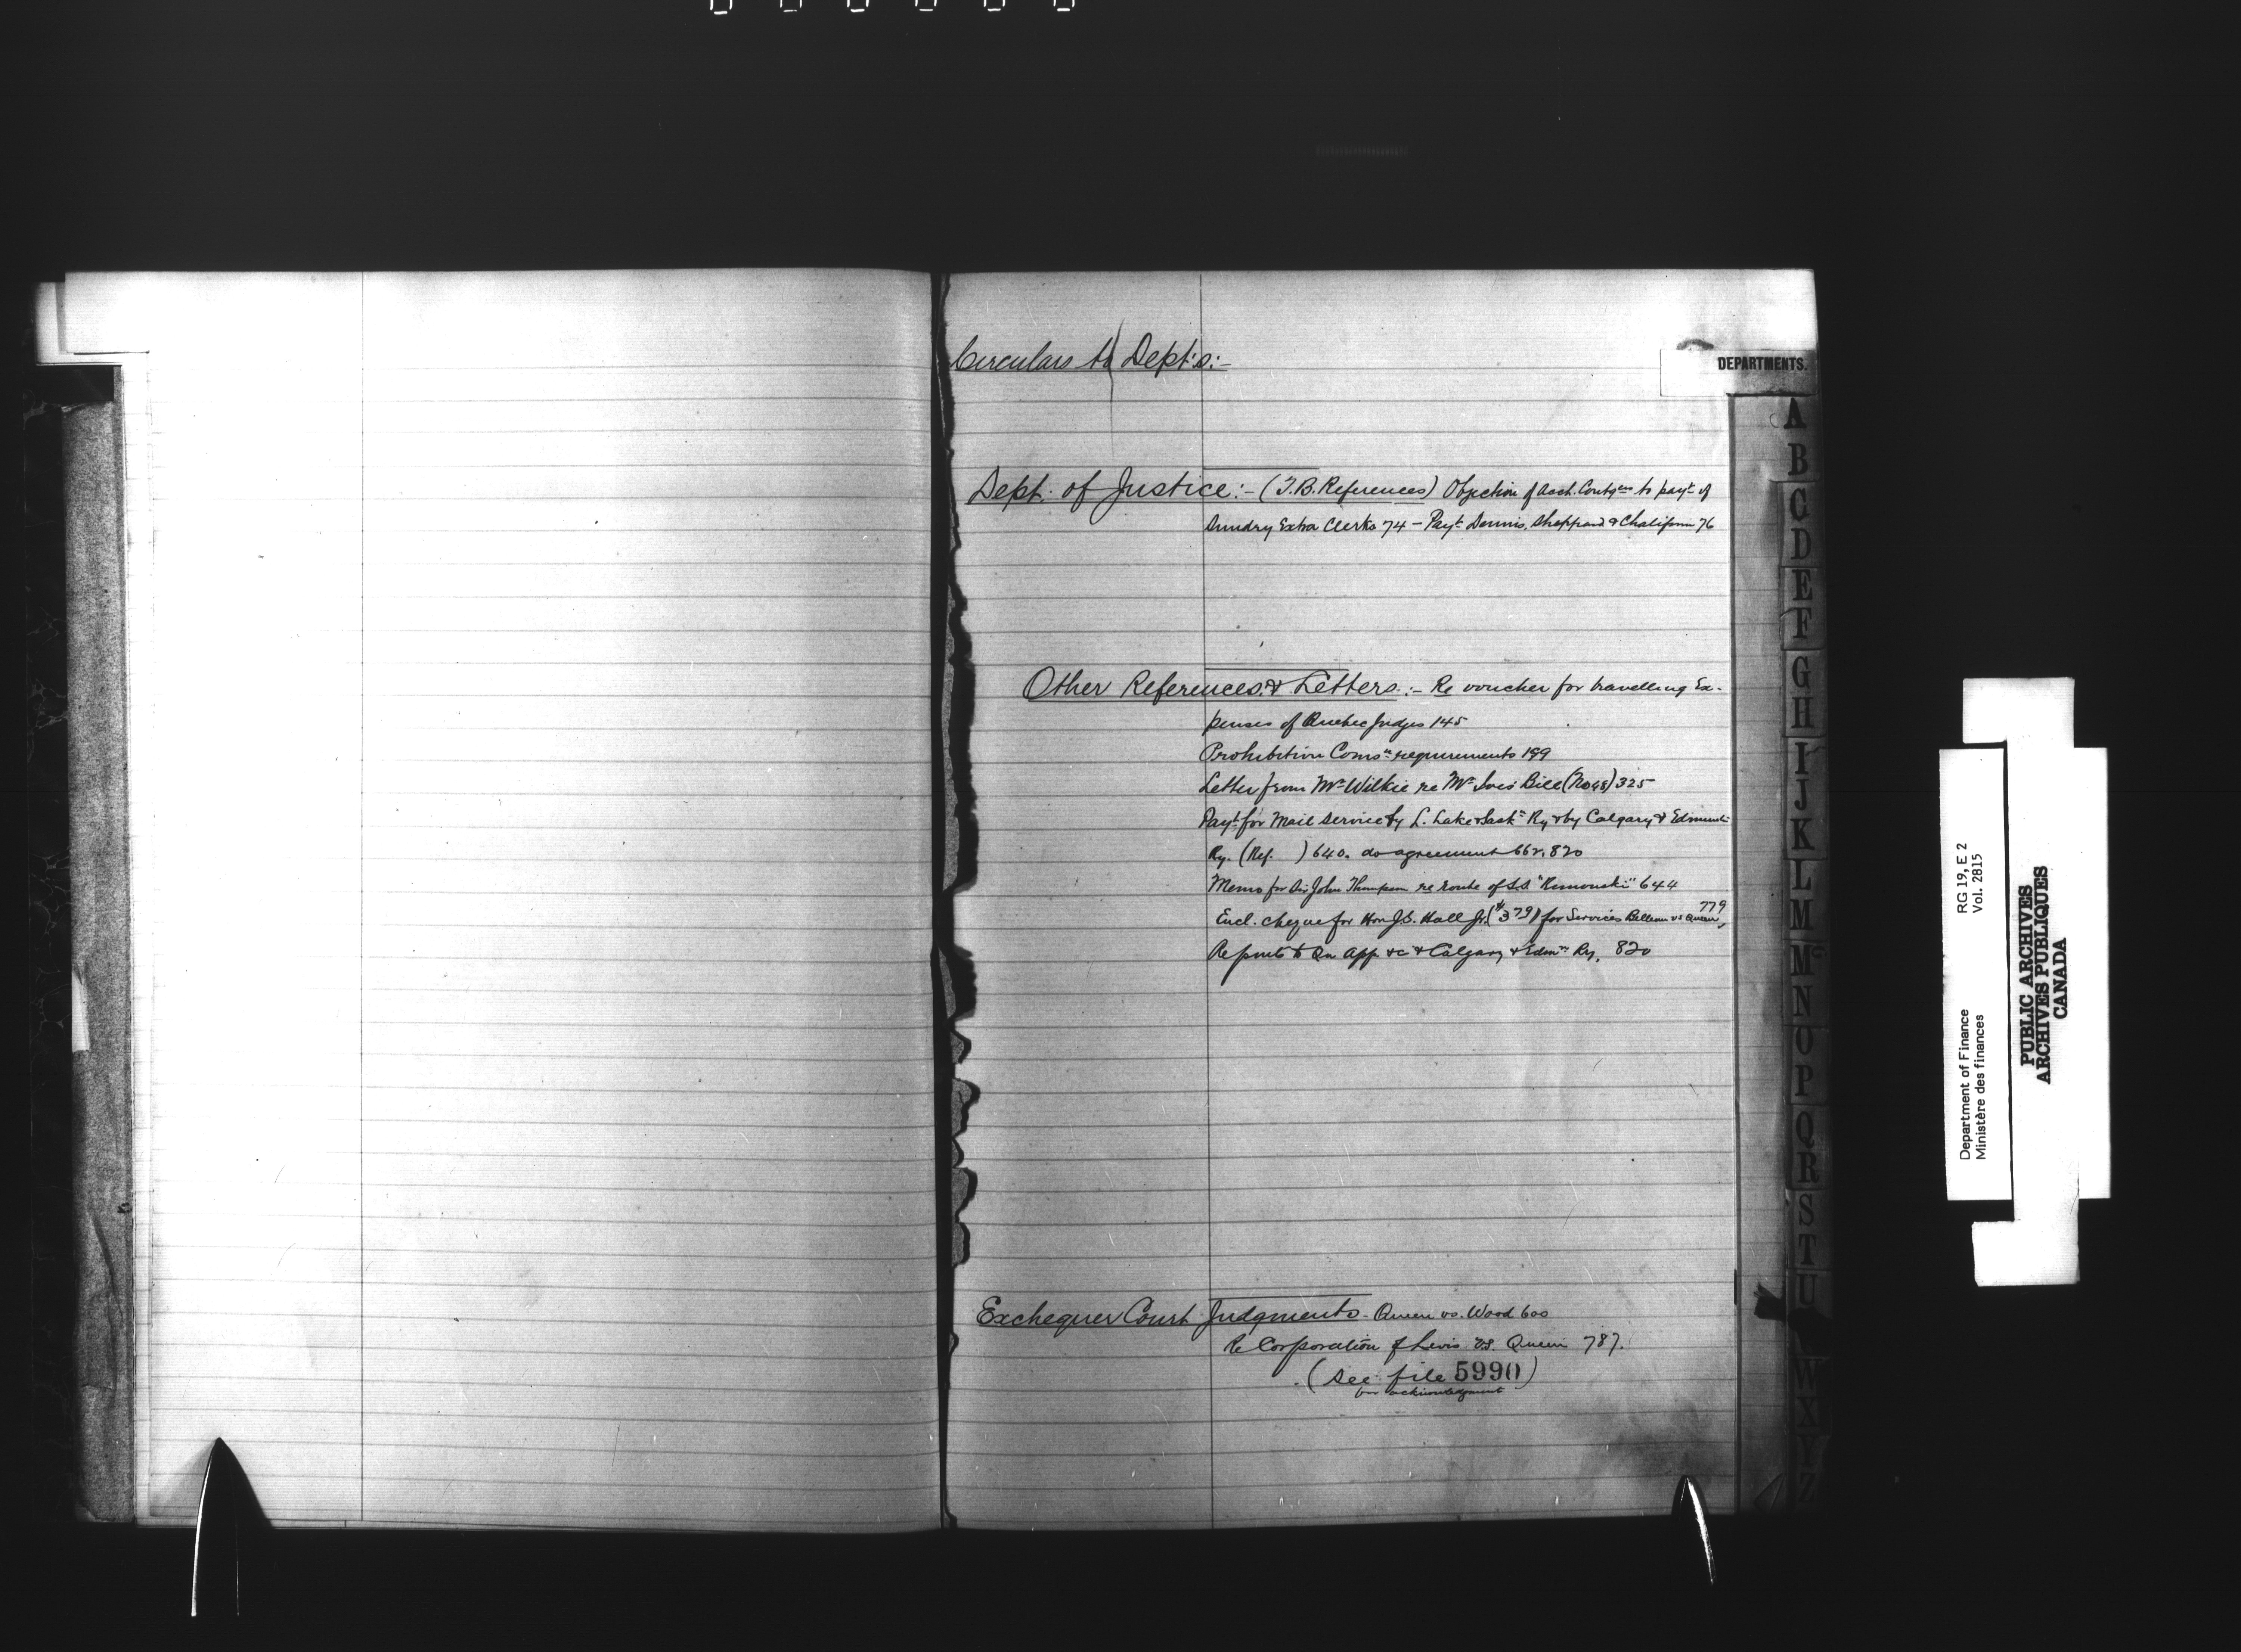 Circulars to Dept's:-
DEPARTMENTS.
Dept. of Justice:- (T.B. References) Objection of Acct. Contgcs to payt. of
Sundry Extra Clerks 74 - Payt. Dennis, Sheppard & Chalifour 76
Other References & Letters:- Re voucher for travelling Ex-
penses of Quebec Judges 145
Prohibition Comsn requirements 199
Letter from Mr Wilkie re Mr Ives Bill (No 48) 325
Payt. for Mail Service by L. Lake & Sask. Ry & by Calgary & Edmontn
Ry. (Ref. ) 640. do agreement 662, 820
Memo for Sir John Thompson re route of S.S. "Rimouski" 644
Encl. cheque for Hon J.S. Hall Jr. ($379) for Services Belleau vs Queen, 779
Reports to Qu App &c & Calgary & Edmn Ry. 820
Exchequer Court Judgments - Queen vs. Wood 600
Re Corporation of Levis vs. Queen 787.
(See file 5990)
for acknowledgment
A
B
C
D
E
F
G
H
I
J
K
L
M
Mc
N
O
P
Q
R
S
T
U
W
X
Y
Z
Department of Finance RG 19, E 2
Ministère des finances Vol. 2815
PUBLIC ARCHIVES
ARCHIVES PUBLIQUES
CANADA